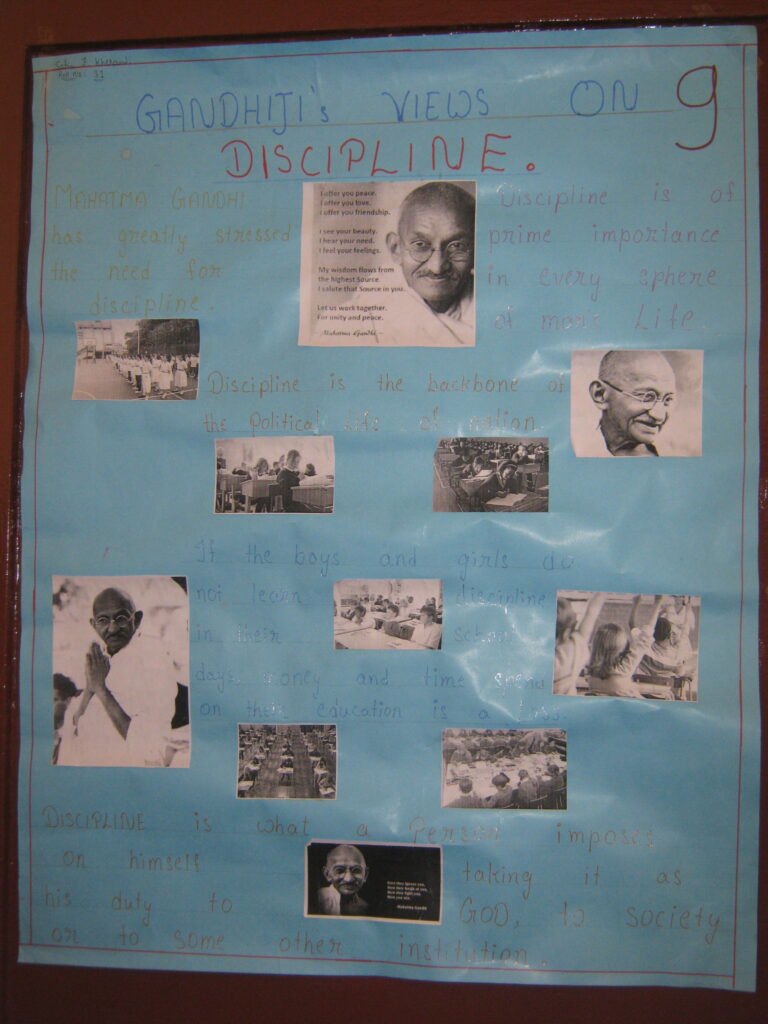 Roll No: 31
GANDHIJI's VIEWS ON 9
DISCIPLINE.
MAHATMA GANDHI
has greatly stressed
the need for
discipline.
I offer you peace.
I offer you love.
I offer you friendship.
I see your beauty.
I hear your need.
I feel your feelings.
My wisdom flows from
the highest Source.
I salute that Source in you.
Let us work together.
For unity and peace.
Mahatma Gandhi
Discipline is of
prime importance
in every sphere
of man's Life.
Discipline is the backbone of
the political life of nation.
If the boys and girls do
not learn discipline
in their school
days, money and time spend
on their education is a loss.
DISCIPLINE is what a Person imposes
on himself taking it as
his duty to GOD, to society
or to some other institution.
First they ignore you,
then they laugh at you,
then they fight you,
then you win.
Mahatma Gandhi